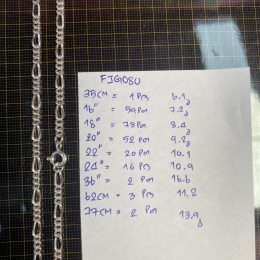 FIGOSU
35CM = 1 PCS 6.1g
16" = 59 PCS 7.2g
18" = 78 PCS 8.4g
20" = 52 PCS 9.2g
22" = 20 PCS 10.1
24" = 16 PCS 10.9
36" = 2 PCS 16.6
62CM = 3 PCS 11.2
77CM = 2 PCS 13.9g